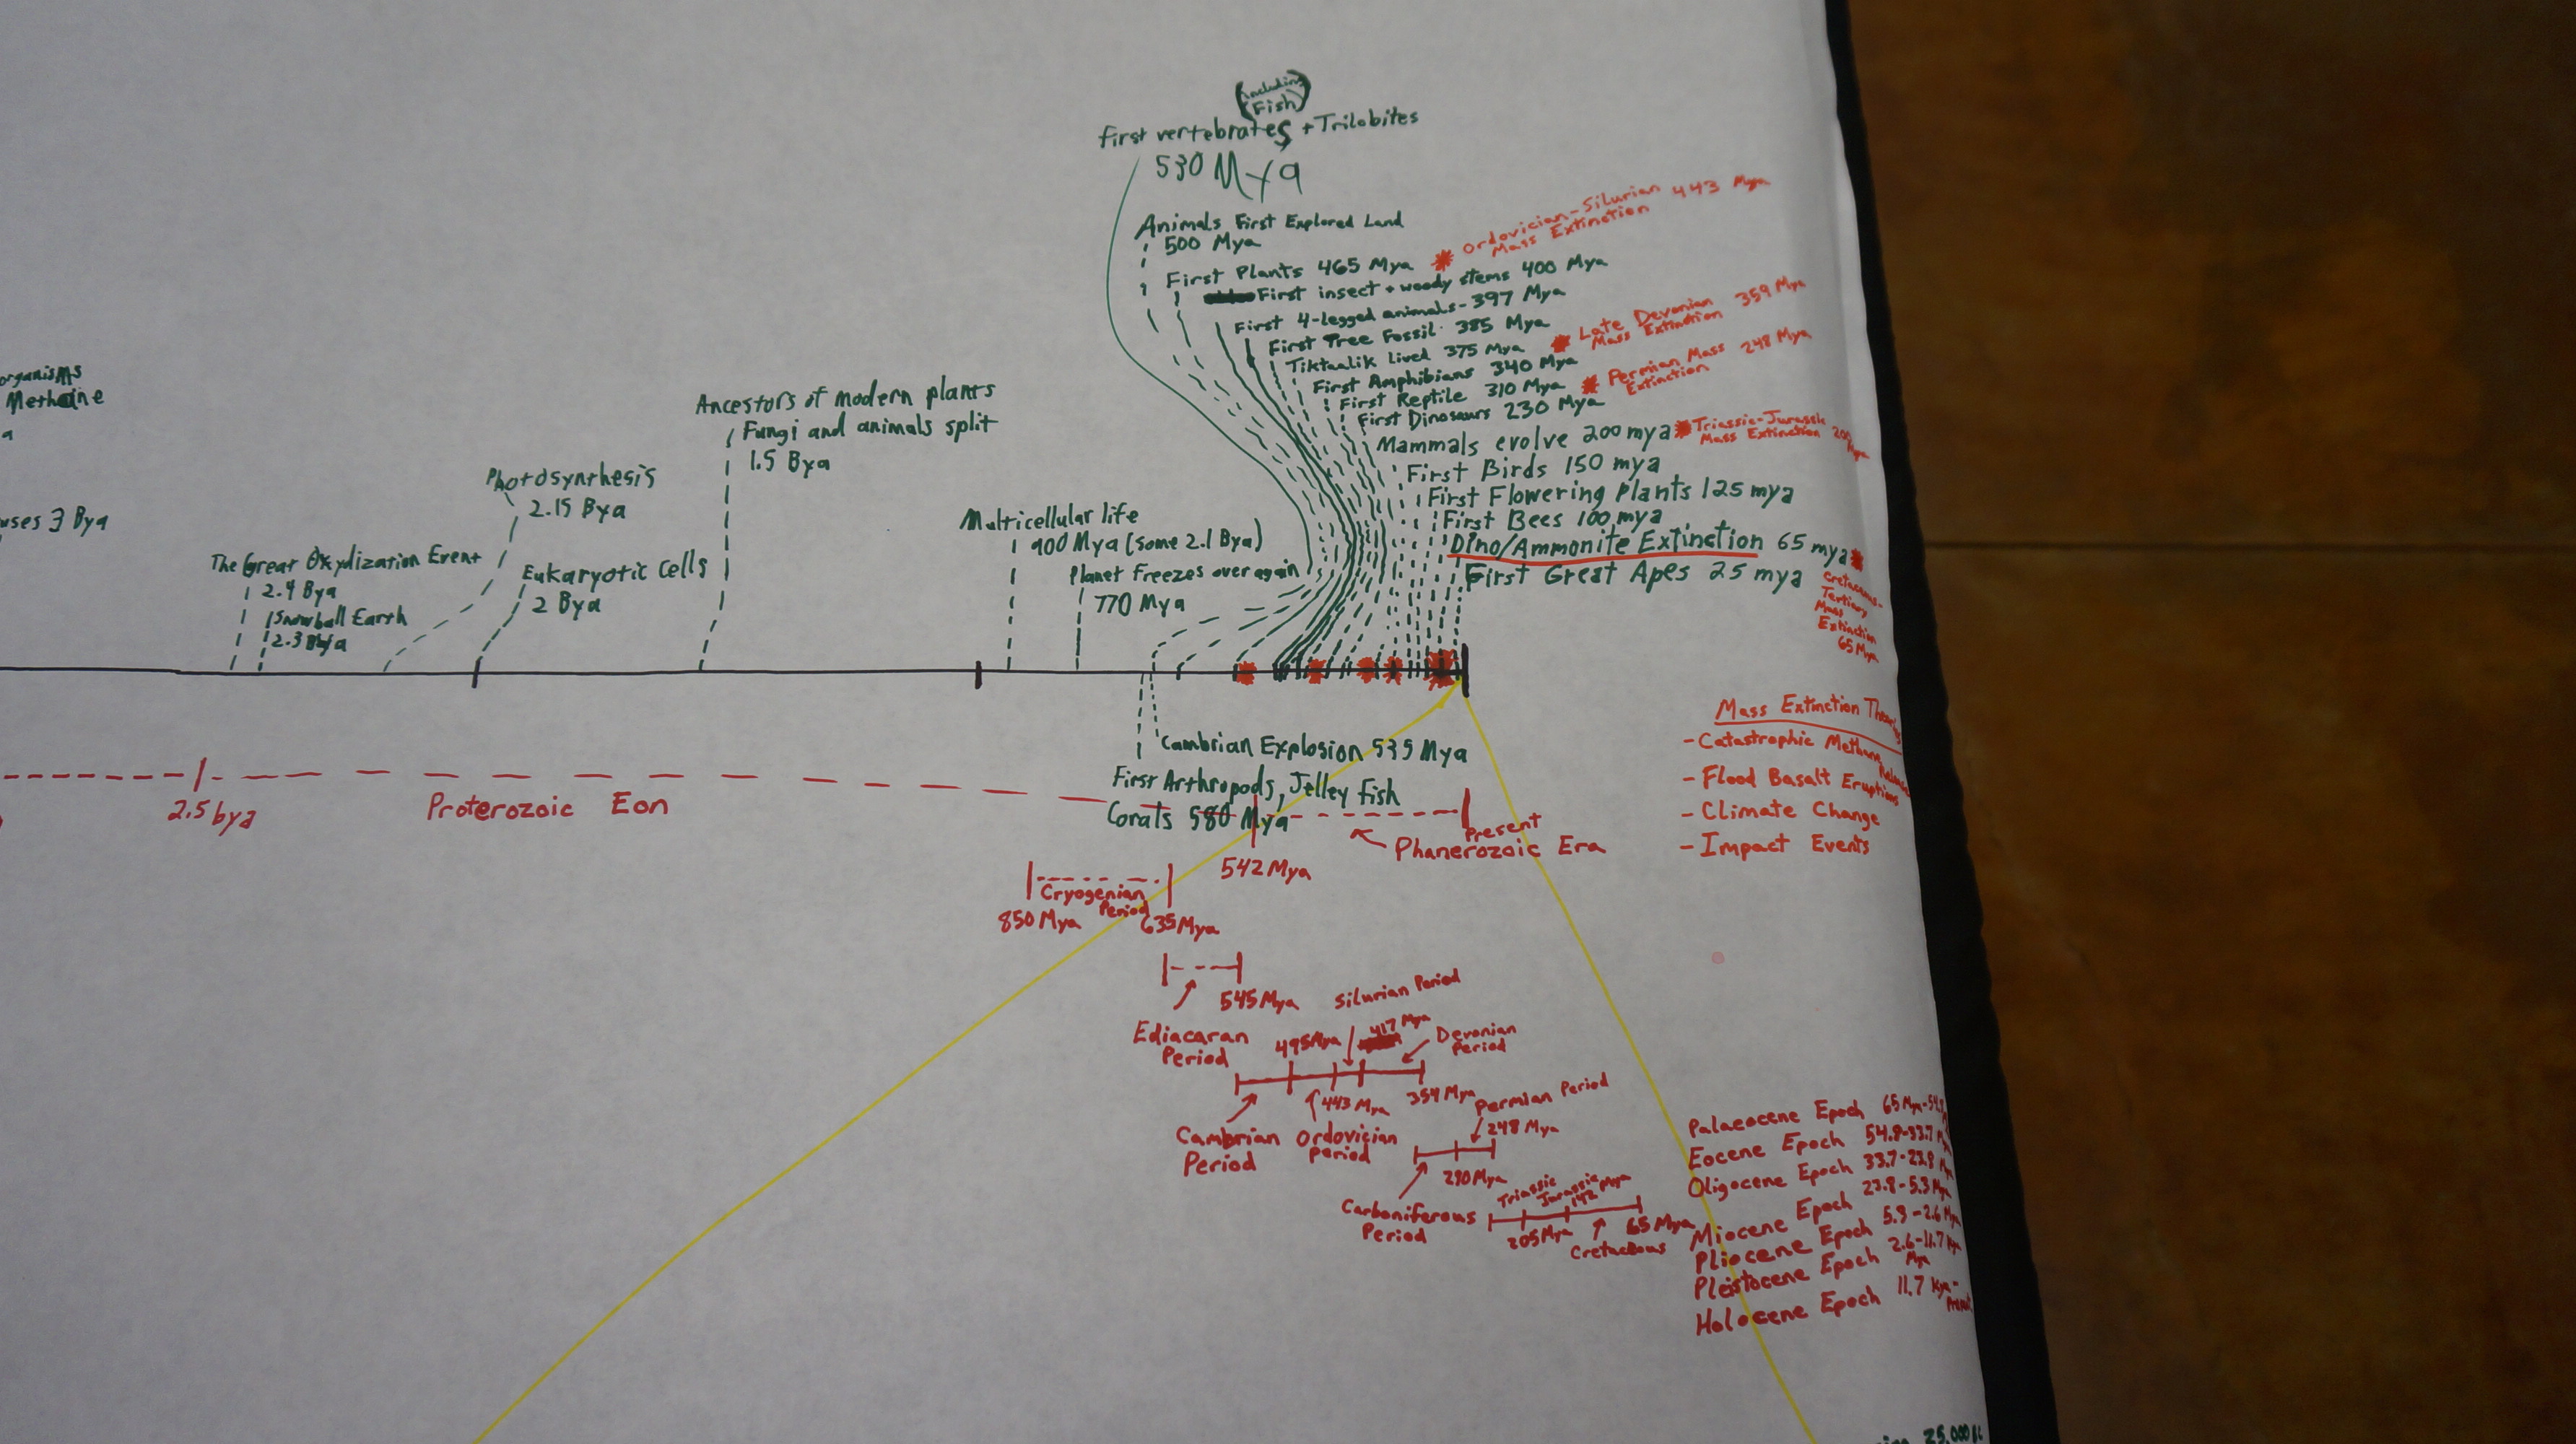 (including
Fish)
First vertebrates, + Trilobites
530 Mya
Animals First Explored Land
500 Mya
First Plants 465 Mya
Ordovician-Silurian 443 Mya
Mass Extinction
First insect + woody stems 400 Mya
First 4-legged animals - 397 Mya
First Tree Fossil 385 Mya
Tiktaalik lived 375 Mya
Late Devonian 359 Mya
Mass Extinction
First Amphibians 340 Mya
First Reptile 310 Mya
Permian Mass 248 Mya
Extinction
First Dinosaurs 230 Mya
Mammals evolve 200 mya
Triassic-Jurassic 200 Mya
Mass Extinction
First Birds 150 mya
First Flowering Plants 125 mya
First Bees 100 mya
Dino/Ammonite Extinction 65 mya
Cretaceous-
Tertiary
Mass
Extinction
65 Mya
First Great Apes 25 mya
organisms
Methane
a
uses 3 Bya
The Great Oxydization Event
2.4 Bya
Snowball Earth
2.3 Bya
Photosynthesis
2.15 Bya
Eukaryotic Cells
2 Bya
Ancestors of modern plants
Fungi and animals split
1.5 Bya
Multicellular life
900 Mya (some 2.1 Bya)
Planet Freezes over again
770 Mya
Cambrian Explosion 535 Mya
First Arthropods, Jelley Fish
Corals 580 Mya
2.5 bya
Proterozoic Eon
Present
Phanerozoic Era
542 Mya
Cryogenian
Period
850 Mya
635 Mya
545 Mya
Ediacaran
Period
Silurian Period
495 Mya
417 Mya
Devonian
Period
443 Mya
354 Mya
Cambrian
Period
Ordovician
Period
Permian Period
248 Mya
290 Mya
Carboniferous
Period
Triassic
Jurassic
142 Mya
205 Mya
65 Mya
Cretaceous
Mass Extinction
- Catastrophic Methane Release
- Flood Basalt Eruptions
- Climate Change
- Impact Events
Palaeocene Epoch 65 Mya-54.
Eocene Epoch 54.8-33.7
Oligocene Epoch 33.7-23.8
Miocene Epoch 23.8-5.3 Mya
Pliocene Epoch 5.3-2.6 Mya
Pleistocene Epoch 2.6-11.7 Kya
Mya
Holocene Epoch 11.7 Kya-
Present
25,000